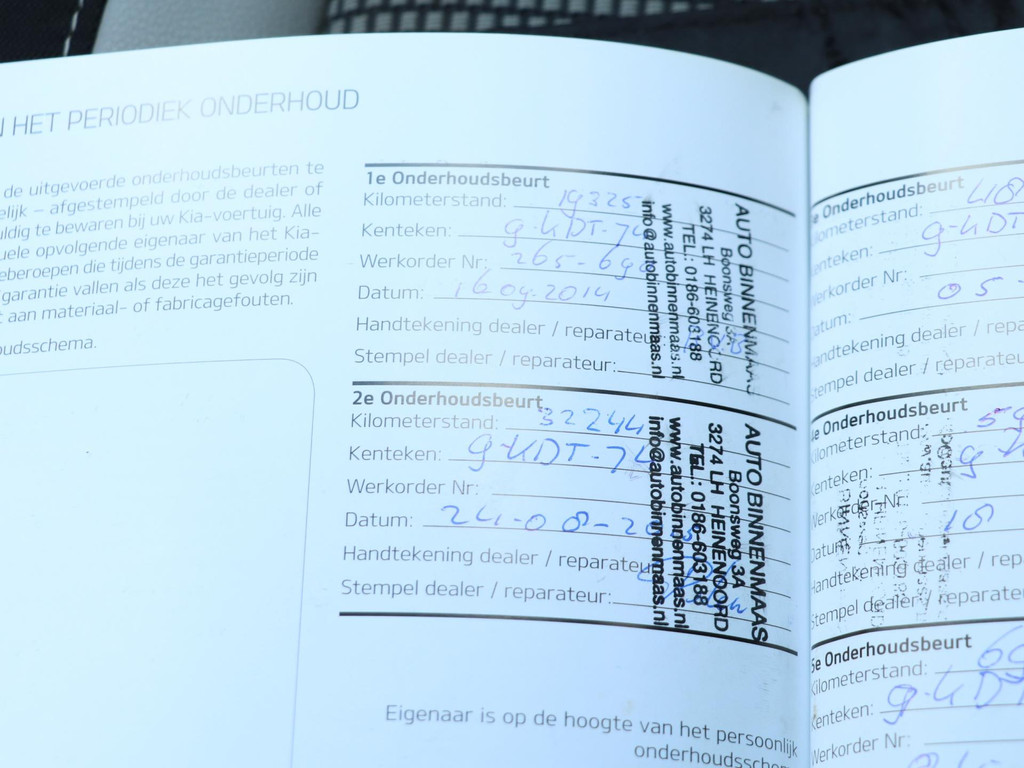 HET PERIODIEK ONDERHOUD
de uitgevoerde onderhoudsbeurten te
elijk – afgestempeld door de dealer of
uldig te bewaren bij uw Kia-voertuig. Alle
uele opvolgende eigenaar van het Kia-
eberoepen die tijdens de garantieperiode
garantie vallen als deze het gevolg zijn
aan materiaal- of fabricagefouten.
oudsschema.
1e Onderhoudsbeurt
Kilometerstand: 19325
Kenteken: g-KDT-74
Werkorder Nr: 265-690
Datum: 16 09-2014
Handtekening dealer / reparateur
Stempel dealer / reparateur:
AUTO BINNENMAAS
Boonsweg 3A
3274 LH HEINENOORD
TEL.: 0186-603188
www.autobinnenmaas.nl
info@autobinnenmaas.nl
2e Onderhoudsbeurt
Kilometerstand: 32244
Kenteken: g-KDT-74
Werkorder Nr:
Datum: 24-08-20
Handtekening dealer / reparateu
Stempel dealer / reparateur:
AUTO BINNENMAAS
Boonsweg 3A
3274 LH HEINENOORD
TEL.: 0186-603188
www.autobinnenmaas.nl
info@autobinnenmaas.nl
Eigenaar is op de hoogte van het persoonlijk
onderhoudssche
e Onderhoudsbeurt
ilometerstand: 48
enteken: g-KDT
erkorder Nr:
atum: 05-
andtekening dealer / repa
tempel dealer / reparateu
e Onderhoudsbeurt
Kilometerstand: 59
Kenteken: g-K
Werkorder Nr:
Datum: 18
Handtekening dealer / rep
Stempel dealer / reparater
5e Onderhoudsbeurt
Kilometerstand: 60
Kenteken: g-KDT
Werkorder Nr: